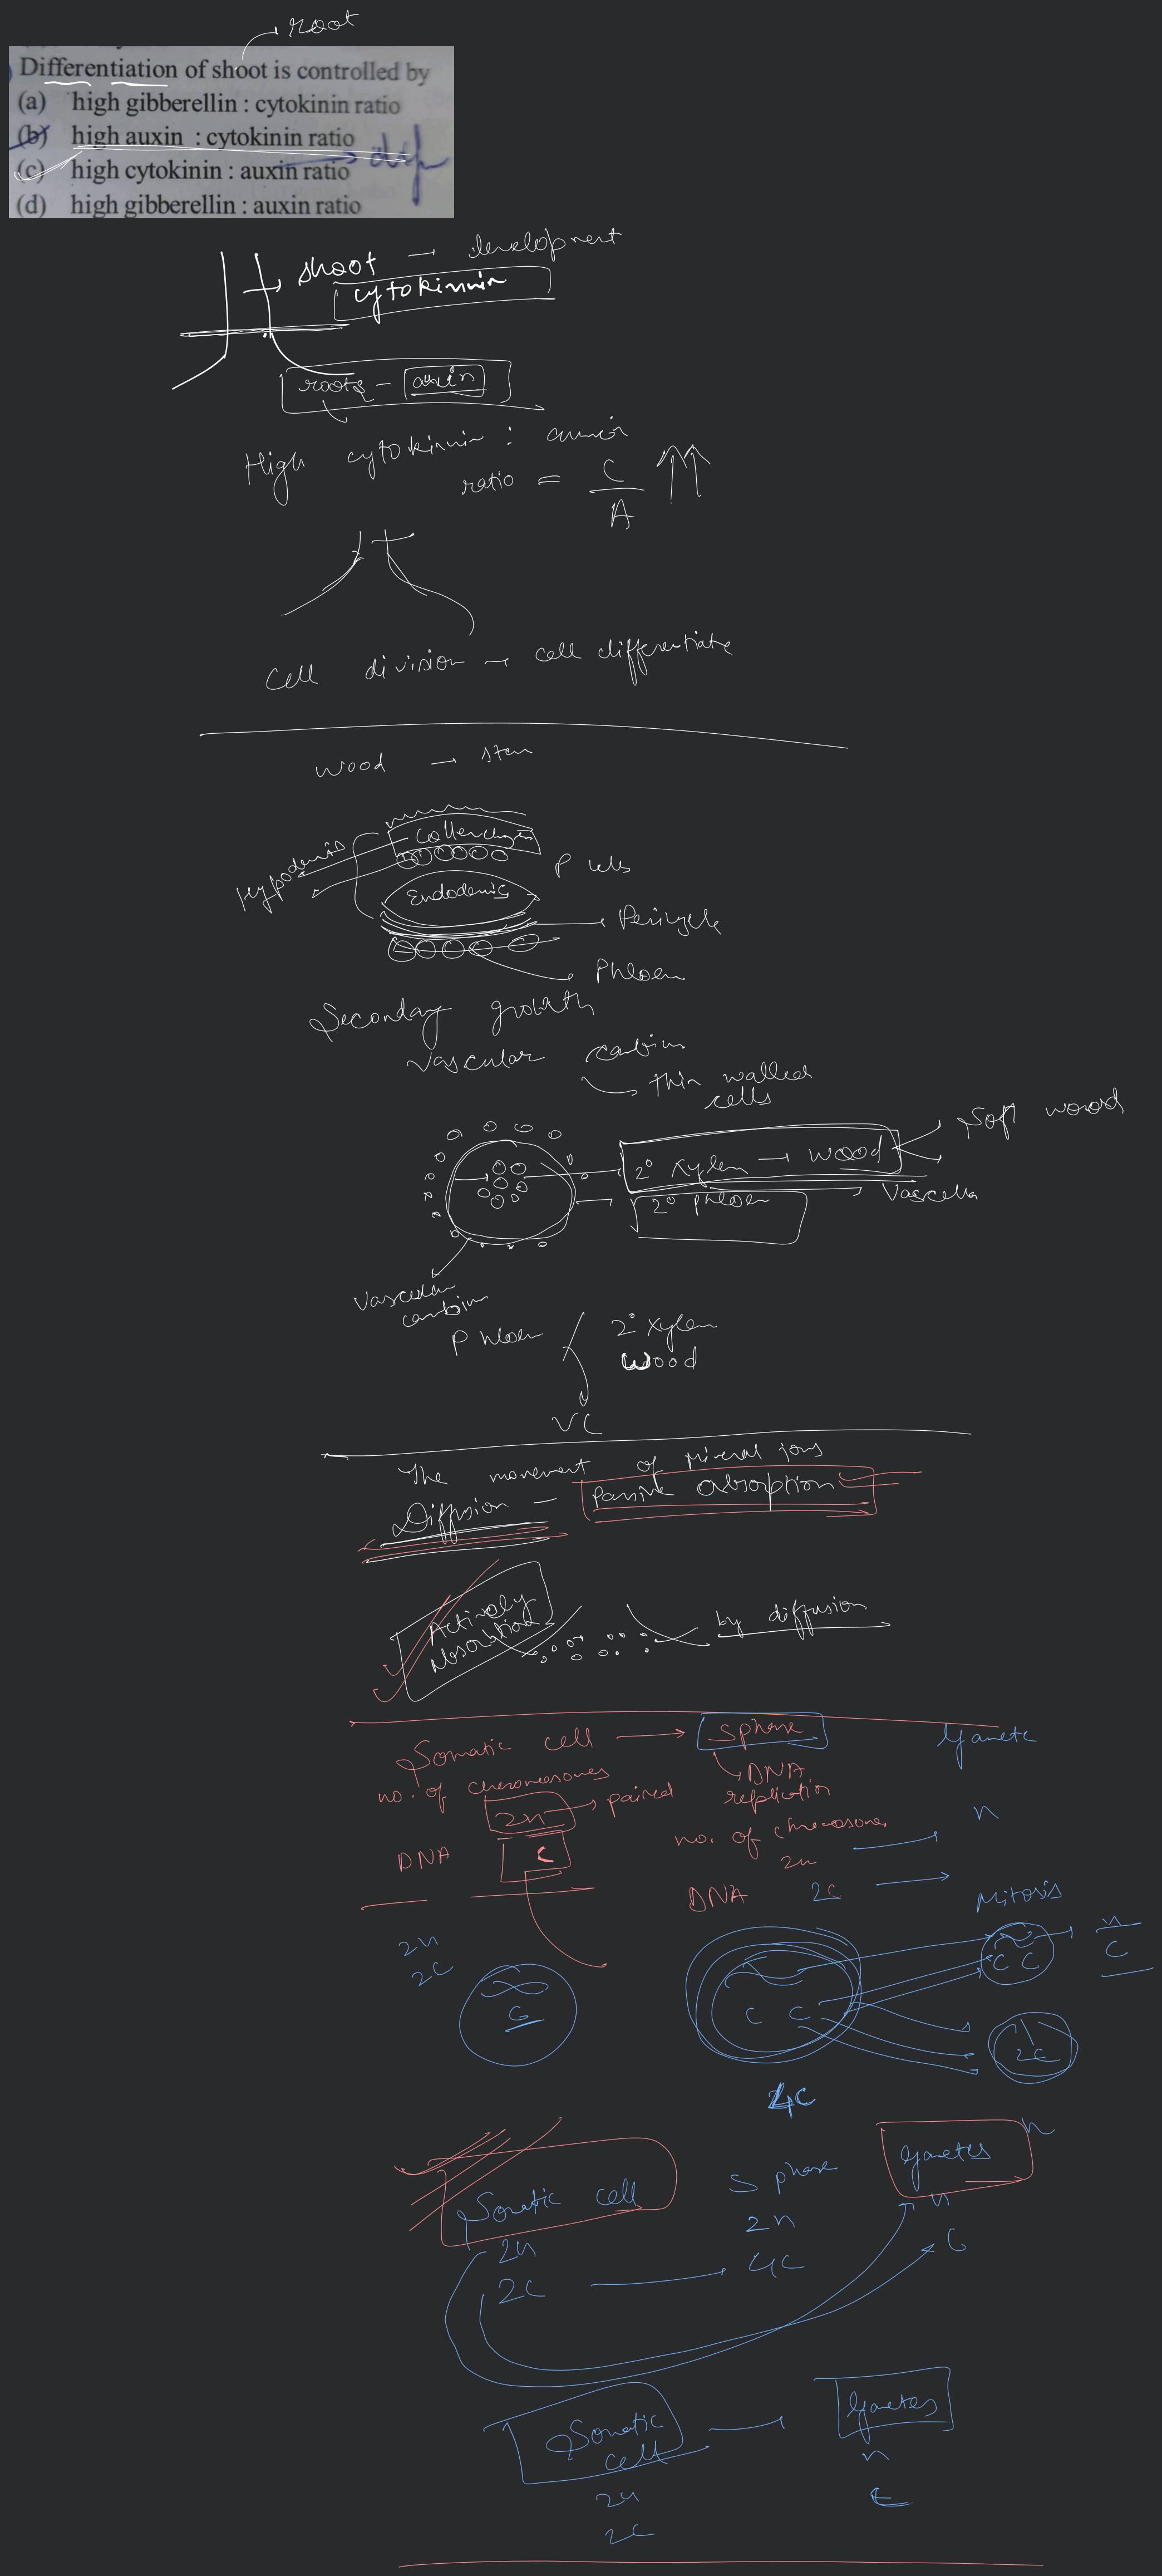 root
Differentiation of shoot is controlled by
(a) high gibberellin : cytokinin ratio
(b) high auxin : cytokinin ratio
(c) high cytokinin : auxin ratio
(d) high gibberellin : auxin ratio
shoot → development
cytokinnin
roots - auxin
High cytokinnin : auxin
ratio = C/A ↑↑
cell division → cell differentiate
wood → stem
Collenchyma
Hypodermis
P cells
Endodermis
Pericycle
Phloem
Secondary growth
Vascular cambium
thin walled
cells
Soft wood
2° xylem → wood
2° phloem
Vascular
cambium
Phloem
2° xylem
wood
VC
The movement of mineral ions
Diffusion - Passive absorption
Actively
absorbtion
by diffusion
Somatic cell → S phase
Gamete
no. of chromosomes
DNA
replication
2n → paired
n
no. of chromosomes
2n
DNA C
DNA 2C
Mitosis
2n
2C
n
C
C C
C
C C
2C
4C
Somatic cell
S phase
Gametes
n
2n
2n
n
2C → 4C
C
Somatic
cell
Gametes
n
C
2n
2C